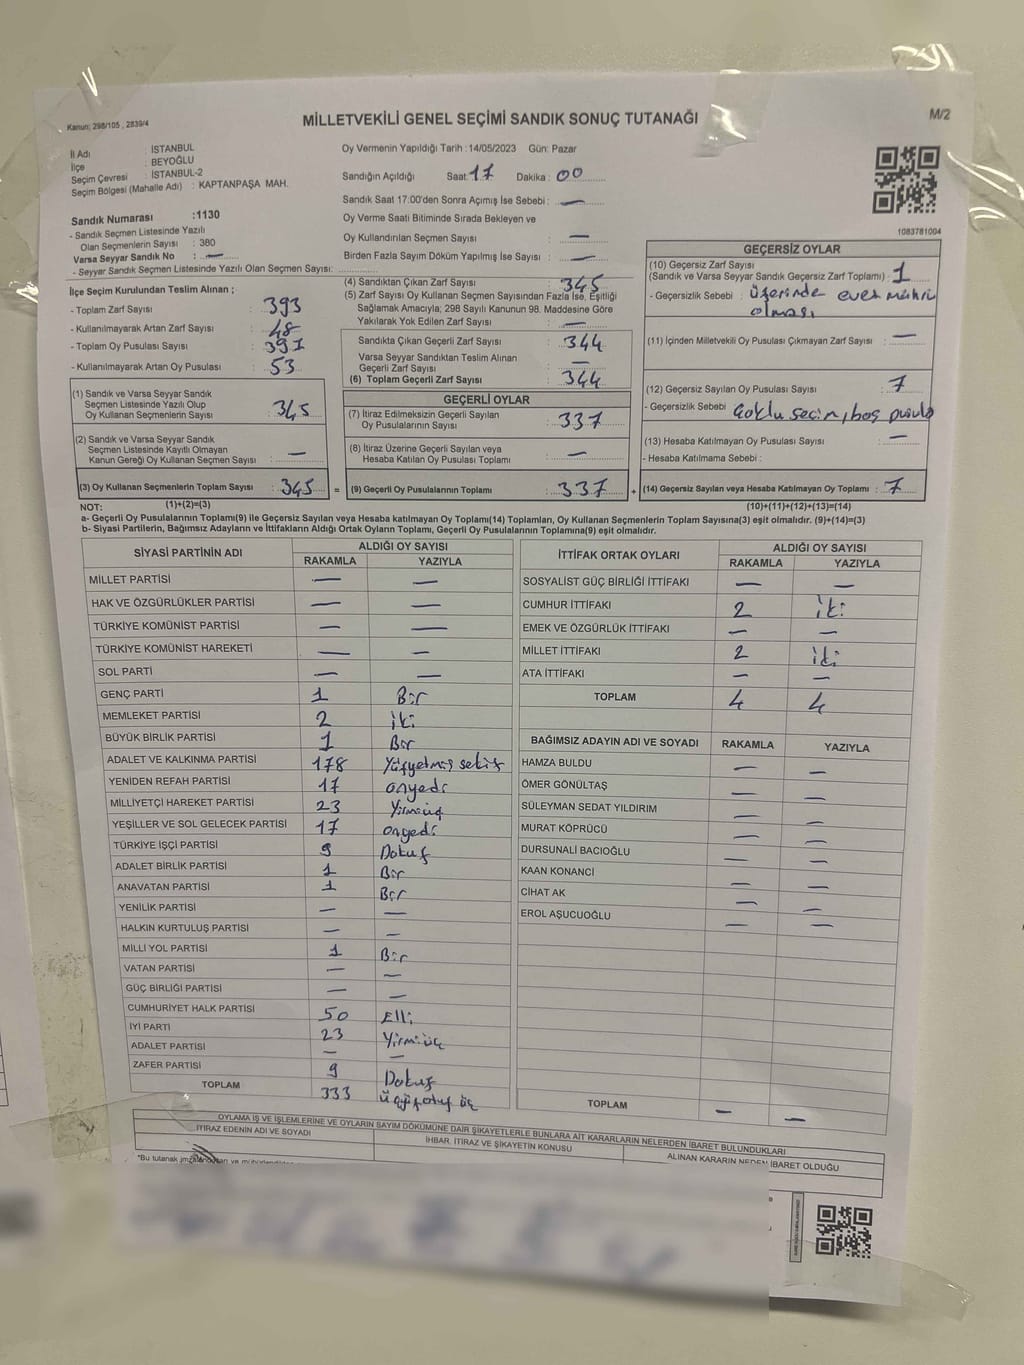 Kanun; 298/105 , 2839/4
MİLLETVEKİLİ GENEL SEÇİMİ SANDIK SONUÇ TUTANAĞI
M/2
İl Adı : İSTANBUL
İlçe : BEYOĞLU
Seçim Çevresi : İSTANBUL-2
Seçim Bölgesi (Mahalle Adı) : KAPTANPAŞA MAH.
Sandık Numarası :1130
- Sandık Seçmen Listesinde Yazılı
Olan Seçmenlerin Sayısı : 380
Varsa Seyyar Sandık No : —
- Seyyar Sandık Seçmen Listesinde Yazılı Olan Seçmen Sayısı:
İlçe Seçim Kurulundan Teslim Alınan ;
- Toplam Zarf Sayısı : 393
- Kullanılmayarak Artan Zarf Sayısı : 48
- Toplam Oy Pusulası Sayısı : 397
- Kullanılmayarak Artan Oy Pusulası : 53
(1) Sandık ve Varsa Seyyar Sandık
Seçmen Listesinde Yazılı Olup
Oy Kullanan Seçmenlerin Sayısı : 345
(2) Sandık ve Varsa Seyyar Sandık
Seçmen Listesinde Kayıtlı Olmayan
Kanun Gereği Oy Kullanan Seçmen Sayısı : —
(3) Oy Kullanan Seçmenlerin Toplam Sayısı : 345
Oy Vermenin Yapıldığı Tarih : 14/05/2023 Gün: Pazar
Sandığın Açıldığı Saat: 17 Dakika : 00
Sandık Saat 17.00'den Sonra Açımış İse Sebebi : —
Oy Verme Saati Bitiminde Sırada Bekleyen ve
Oy Kullandırılan Seçmen Sayısı : —
Birden Fazla Sayım Döküm Yapılmış İse Sayısı : —
(4) Sandıktan Çıkan Zarf Sayısı : 345
(5) Zarf Sayısı Oy Kullanan Seçmen Sayısından Fazla İse, Eşitliği
Sağlamak Amacıyla; 298 Sayılı Kanunun 98. Maddesine Göre
Yakılarak Yok Edilen Zarf Sayısı : —
Sandıkta Çıkan Geçerli Zarf Sayısı : 344
Varsa Seyyar Sandıktan Teslim Alınan
Geçerli Zarf Sayısı : —
(6) Toplam Geçerli Zarf Sayısı : 344
GEÇERLİ OYLAR
(7) İtiraz Edilmeksizin Geçerli Sayılan
Oy Pusulalarının Sayısı : 337
(8) İtiraz Üzerine Geçerli Sayılan veya
Hesaba Katılan Oy Pusulası Toplamı : —
= (9) Geçerli Oy Pusulalarının Toplamı : 337 +
1083781004
GEÇERSİZ OYLAR
(10) Geçersiz Zarf Sayısı
(Sandık ve Varsa Seyyar Sandık Geçersiz Zarf Toplamı) : 1
- Geçersizlik Sebebi : üzerinde evet mührü
olması
(11) İçinden Milletvekili Oy Pusulası Çıkmayan Zarf Sayısı : —
(12) Geçersiz Sayılan Oy Pusulası Sayısı : 7
- Geçersizlik Sebebi : Çoklu seçim, boş pusula
(13) Hesaba Katılmayan Oy Pusulası Sayısı : —
- Hesaba Katılmama Sebebi :
(14) Geçersiz Sayılan veya Hesaba Katılmayan Oy Toplamı : 7
NOT: (1)+(2)=(3) (10)+(11)+(12)+(13)=(14)
a- Geçerli Oy Pusulalarının Toplamı(9) ile Geçersiz Sayılan veya Hesaba katılmayan Oy Toplamı(14) Toplamları, Oy Kullanan Seçmenlerin Toplam Sayısına(3) eşit olmalıdır. (9)+(14)=(3)
b- Siyasi Partilerin, Bağımsız Adayların ve İttifakların Aldığı Ortak Oyların Toplamı, Geçerli Oy Pusulalarının Toplamına(9) eşit olmalıdır.
SİYASİ PARTİNİN ADI ALDIĞI OY SAYISI
RAKAMLA YAZIYLA
MİLLET PARTİSİ — —
HAK VE ÖZGÜRLÜKLER PARTİSİ — —
TÜRKİYE KOMÜNİST PARTİSİ — —
TÜRKİYE KOMÜNİST HAREKETİ — —
SOL PARTİ — —
GENÇ PARTİ 1 Bir
MEMLEKET PARTİSİ 2 iki
BÜYÜK BİRLİK PARTİSİ 1 Bir
ADALET VE KALKINMA PARTİSİ 178 Yüzyetmiş sekiz
YENİDEN REFAH PARTİSİ 17 onyedi
MİLLİYETÇİ HAREKET PARTİSİ 23 Yirmiüç
YEŞİLLER VE SOL GELECEK PARTİSİ 17 onyedi
TÜRKİYE İŞÇİ PARTİSİ 9 Dokuz
ADALET BİRLİK PARTİSİ 1 Bir
ANAVATAN PARTİSİ 1 Bir
YENİLİK PARTİSİ — —
HALKIN KURTULUŞ PARTİSİ — —
MİLLİ YOL PARTİSİ 1 Bir
VATAN PARTİSİ — —
GÜÇ BİRLİĞİ PARTİSİ — —
CUMHURİYET HALK PARTİSİ 50 Elli
İYİ PARTİ 23 Yirmiüç
ADALET PARTİSİ — —
ZAFER PARTİSİ 9 Dokuz
TOPLAM 333 Üçyüzotuz üç
İTTİFAK ORTAK OYLARI ALDIĞI OY SAYISI
RAKAMLA YAZIYLA
SOSYALİST GÜÇ BİRLİĞİ İTTİFAKI — —
CUMHUR İTTİFAKI 2 iki
EMEK VE ÖZGÜRLÜK İTTİFAKI — —
MİLLET İTTİFAKI 2 iki
ATA İTTİFAKI — —
TOPLAM 4 4
BAĞIMSIZ ADAYIN ADI VE SOYADI RAKAMLA YAZIYLA
HAMZA BULDU — —
ÖMER GÖNÜLTAŞ — —
SÜLEYMAN SEDAT YILDIRIM — —
MURAT KÖPRÜCÜ — —
DURSUNALİ BACIOĞLU — —
KAAN KONANCİ — —
CİHAT AK — —
EROL AŞUCUOĞLU — —
TOPLAM — —
OYLAMA İŞ VE İŞLEMLERİNE VE OYLARIN SAYIM DÖKÜMÜNE DAİR ŞİKAYETLERLE BUNLARA AİT KARARLARIN NELERDEN İBARET BULUNDUKLARI
İTİRAZ EDENİN ADI VE SOYADI İHBAR, İTİRAZ VE ŞİKAYETİN KONUSU ALINAN KARARIN NEDEN İBARET OLDUĞU
*Bu tutanak